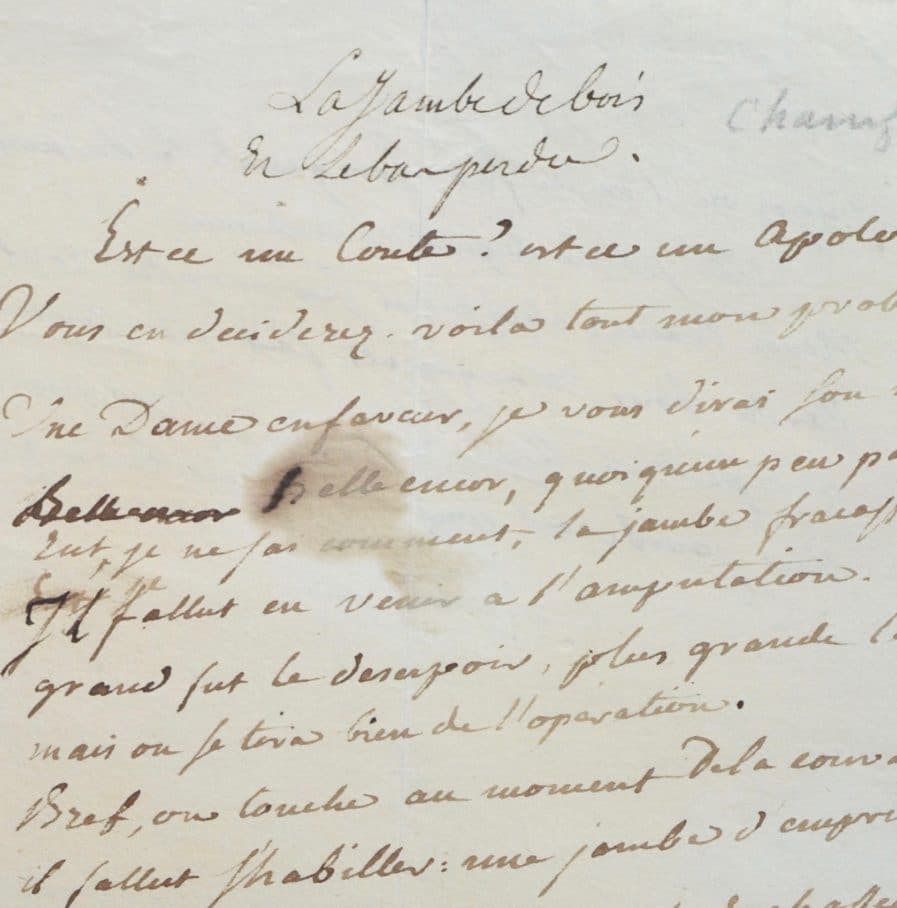 La Jambe de bois
Et Le bas perdu.
Cham
Est ce un Conte? est ce un Apolo
Vous en deciderez. voila tout mon prob
Une Dame en faveur, je vous dirai son
Belle encor Belle encor, quoiqu'un peu pa
Eut, je ne sai comment, la jambe fracass
Il fallut en venir a l'amputation.
grand fut le desespoir, plus grande l
mais on se tira bien de l'operation.
Bref, on touche au moment De la conva
il fallut s'habiller: une jambe d'empru